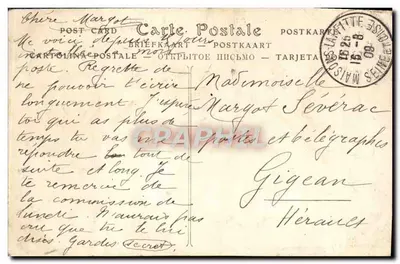 Chère Margot
Carte Postale
POST CARD POSTKARTE
BRIEFKAART — POSTKAART
CARTOLINA POSTALE — ОТКРЫТОЕ ПИСЬМО — TARJETA
MAISONS-LAFFITTE
16 25
15 - 8
09
SEINE ET OISE
Me voici depuis
poste. Regrette de
ne pouvoir t'écrire
longuement
toi qui as plus de
temps tu vas me
répondre tout de
suite et long. Je
te remercie de
la commission de
lundi. N'aurais pas
cru que tu le lui
dirais. Gardes secret.
Mademoiselle
Margot Séverac
postes et télégraphes
Gigean
Hérault